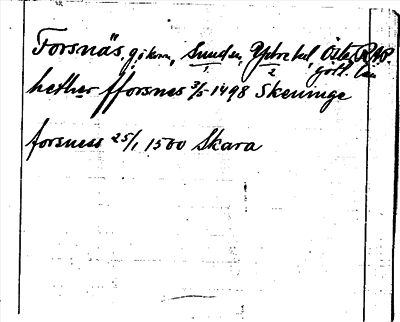 Forsnäs, g. o kvarn, Sunden, Ydre hd, Öster- RAP.
götl. län
hether fforsnes 3/5 1498 Skeninge
forsness 25/1 1500 Skara